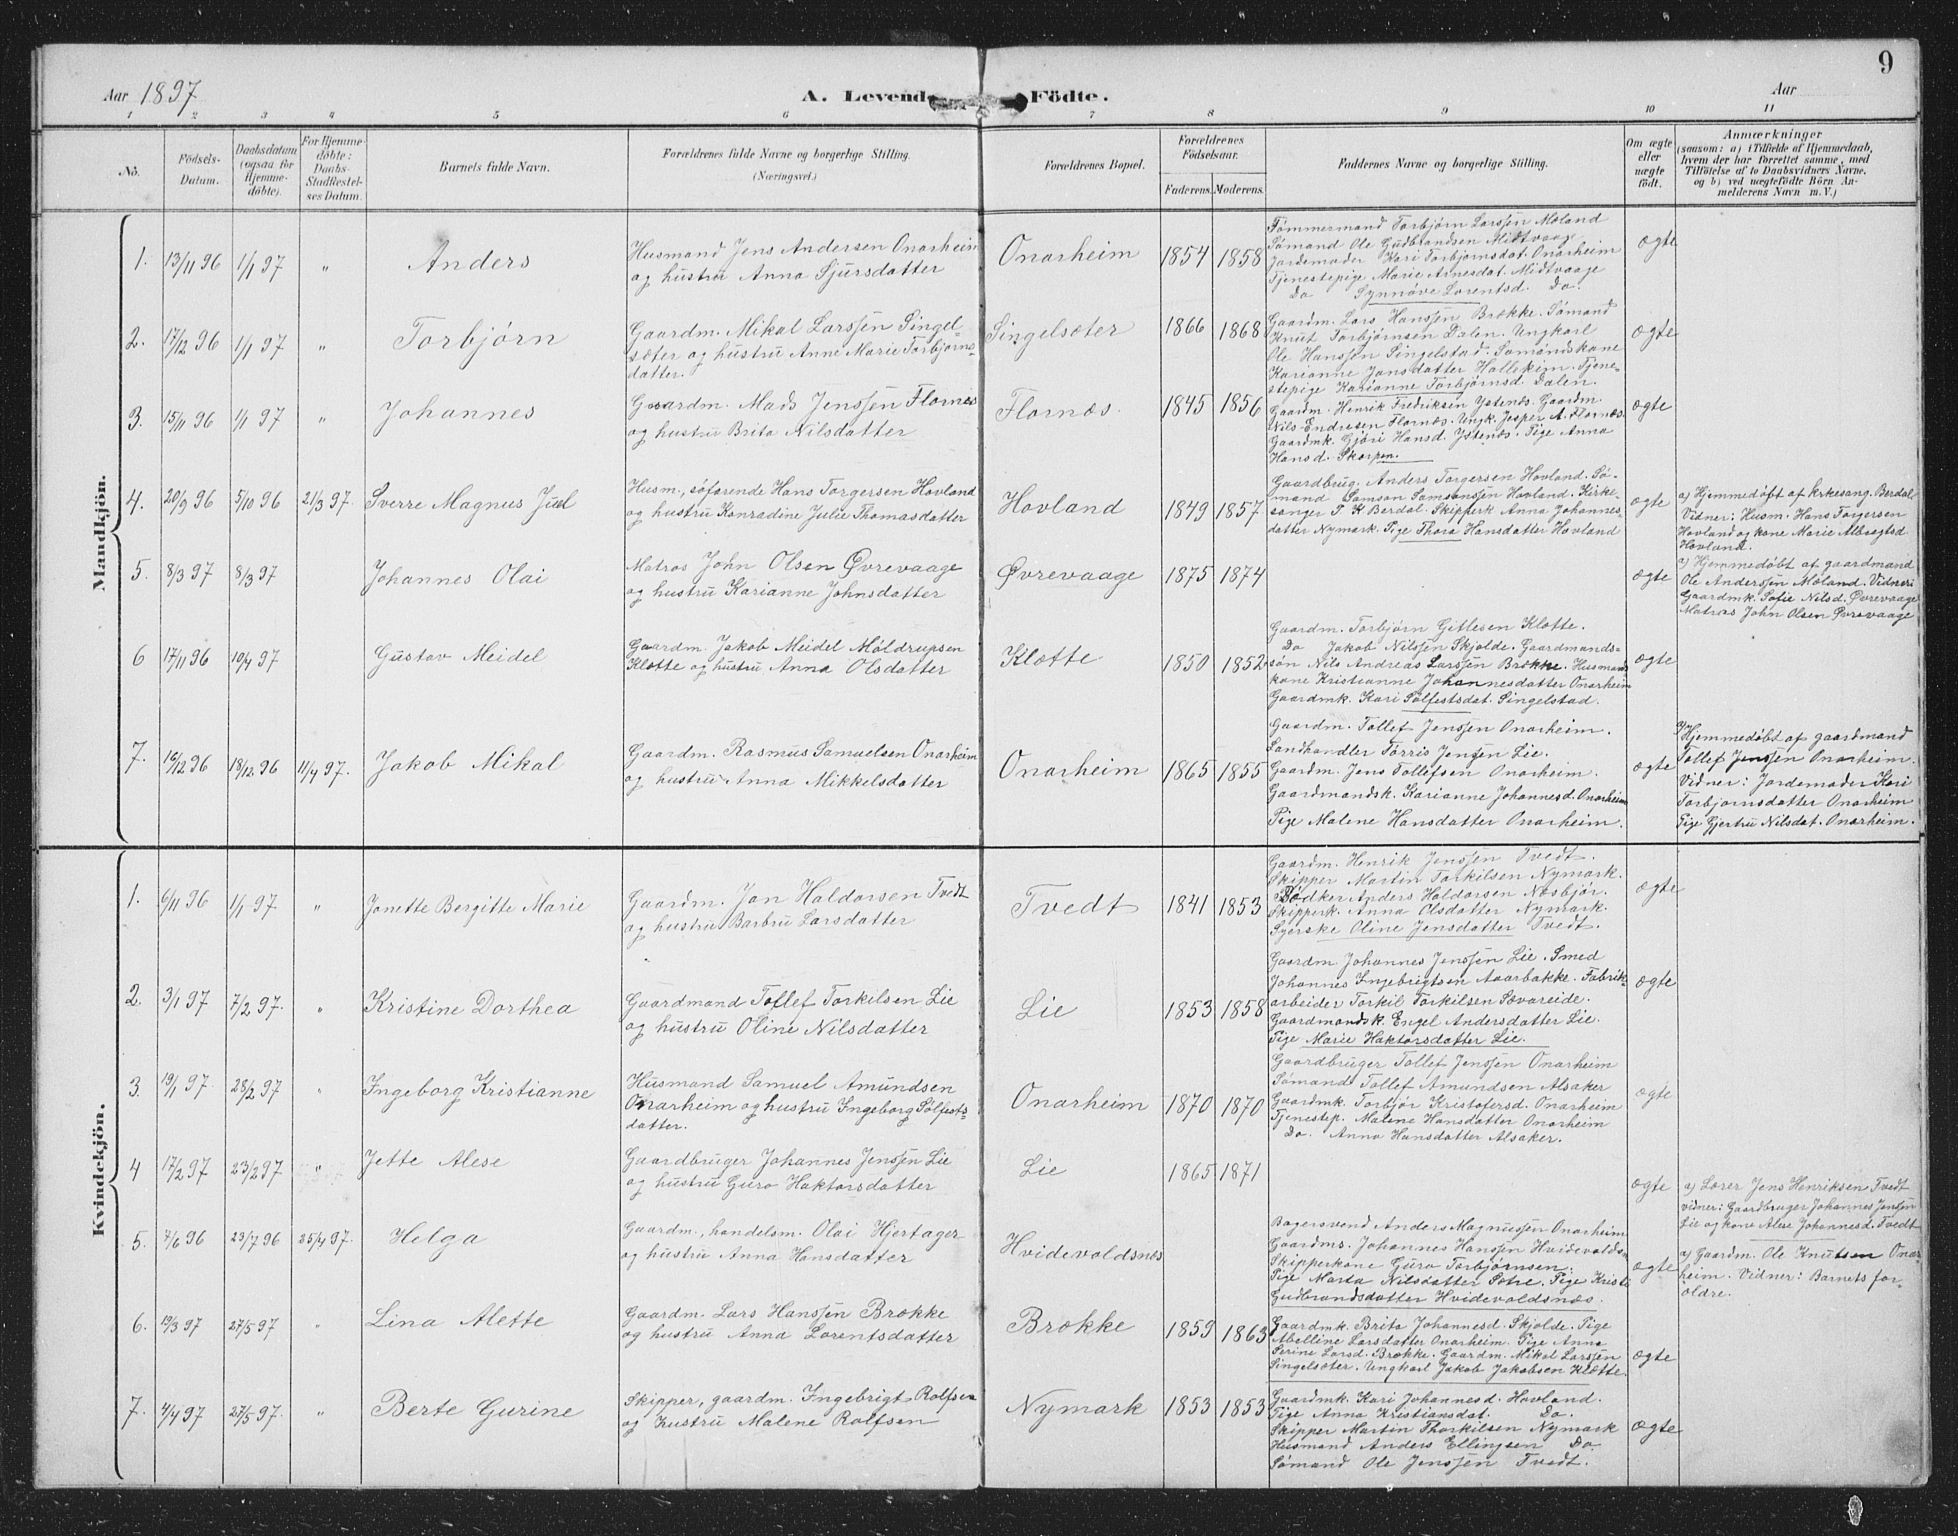 9
Aar 1897
A. Levende Födte.
Aar
1 2 3 4 5 6 7 8 9 10 11
No.
Födsels-
Datum.
Daabsdatum
(ogsaa for
Hjemme-
döbte).
For Hjemme-
döbte:
Daabs-
Stadfæstel-
ses Datum.
Barnets fulde Navn.
Forældrenes fulde Navne og borgerlige Stilling.
(Næringsvei.)
Forældrenes Bopæl.
Forældrenes
Födselsaar.
Faderens. Moderens.
Faddernes Navne og borgerlige Stilling.
Om ægte
eller
uægte
födt.
Anmærkninger
(saasom: a) i Tilfælde af Hjemmedaab,
hvem der har forrettet samme, med
Tilföielse af to Daabsvidners Navne,
og b) ved uægtefödte Börn An-
melderens Navn m. V.)
Mandkjön.
1. 13/11 96 1/1 97 " Anders
Husmand Jens Andersen Onarheim
og hustru Anna Sjursdatter
Onarheim 1854 1858
Tømmermand Torbjørn Larssen Mæland
Sømand Ole Gudbrandsen Midtvaage
Jordemoder Kari Torbjørnsdat. Onarheim
Tjenestepige Marie Arnesdat. Midtvaage
Do Synnøve Lorentsd. Do.
ægte
2. 17/12 96 1/1 97 " Torbjørn
Gaardm. Mikal Larssen Singel-
sæter og hustru Anne Marie Torbjørns-
datter.
Singelsæter 1866 1868
Gaardm. Lars Hanssen Brække. Sømand
Knut Torbjørnsen Dalen. Ungkarl
Ole Hanssen Singelstad. Sømandskone
Karianne Jonsdatter Hallekim. Tjene-
stepige Karianne Torbjørnsd. Dalen.
ægte
3. 15/11 96 1/1 97 " Johannes
Gaardm. Mads Jenssen Flornes
og hustru Brita Nilsdatter
Flornæs. 1845 1856
Gaardm. Henrik Fredriksen Ystenæs. Gaardm.
Nils Endresen Flornæs. Ungk. Jesper A. Flornæs.
Gaardmk. Gjøri Hansd. Ystenæs. Pige Anna
Hansd. Skorpen.
ægte
4. 20/9 96 5/10 96 21/3 97. Sverre Magnus Juul
Husm., søfarende Hans Torgersen Hovland
og hustru Konradine Julie Thomasdatter
Hovland 1849 1857
Gaardbrug. Anders Torgersen Hovland. Sø-
mand Samson Samsonsen Hovland. Kirke-
sanger P. K Berdal. Skipperk. Anna Johannes-
datter Nymark. Pige Thora Hansdatter Hovland
ægte
a) Hjemmedøbt af krkesang. Berdal
Vidner: Husm. Hans Torgersen
Hovland og kone Marie Albregtsd
Hovland.
5. 8/3 97 8/3 97 Johannes Olai
Matros John Olsen Øvrevaage
og hustru Karianne Johnsdatter
Øvrevaage 1875 1874
ægte
a) Hjemmedøbt af gaardmand
Ole Anderssen Mæland. Vidner:
Gaardmk. Sofie Nilsd. Øvrevaage
Matros John Olsen Øvrevaage
6 17/11 96 10/4 97 Gustav Meidel
Gaardm. Jakob Meidel Møldrupsen
Kløtte og hustru Anna Olsdatter
Klætte 1850 1852
Gaardm. Torbjørn Gitlesen Kløtte.
Do Jakob Nilssen Skjolde. Gaardmands-
søn Nils Andreas Larssen Brække. Husmands
kone Kristianne Johannesdatter Onarheim
Gaardmk. Kari Sølfestsdat. Singelstad.
ægte
7. 16/12 96 18/12 96 11/4 97. Jakob Mikal
Gaardm. Rasmus Samuelsen Onarheim
og hustru Anna Mikkelsdatter
Onarheim 1865 1855
Gaardm. Tollef Jenssen Onarheim.
Landhandler Tørris Jenssen Lie.
Gaardm. Jens Tollefsen Onarheim.
Gaardmandsk. Karianne Johannesd. Onarheim
Pige Malene Hansdatter Onarheim.
ægte
a) Hjemmedøbt af gaardmand
Tollef Jenssen Onarheim.
Vidner: Jordemoder Kari
Torbjørnsdatter Onarheim
Pige Gjertru Nilsdat. Onarheim.
Kvindekjön.
1. 6/11 96 1/1 97 " Jonette Bergitte Marie
Gaardm. Jon Haldorsen Tvedt
og hustru Barbru Larsdatter
Tvedt 1841 1853
Gaardm. Henrik Jenssen Tvedt.
Skipper Martin Torkilsen Nymark.
Bødker Anders Haldorsen Næsbjør.
Skipperk. Anna Olsdatter Nymark.
Syerske Oline Jensdatter Tvedt.
ægte
2. 3/1 97 7/2 97. " Kristine Dorthea
Gaardmand Tollef Torkilsen Lie
og hustru Oline Nilsdatter
Lie 1853 1858
Gaardm. Johannes Jenssen Lie. Smed
Johannes Ingebrigtsen Aaarbakke. Fabrik-
arbeider Torkil Torkilsen Sævareide.
Gaardmandsk. Engel Andersdatter Lie.
Pige Marie Haktorsdatter Lie.
ægte
3 19/1 97. 28/2 97 " Ingeborg Kristianne
Husmand Samuel Amundsen
Onarheim og hustru Ingeborg Sølfests-
datter.
Onarheim 1870 1870
Gaardbruger Tollef Jenssen Onarheim
Sømand Tollef Amundsen Alsaker
Gaardmk. Torbjør Kristofersd. Onarheim
Tjenestep. Malene Hansdatter Onarheim
Do. Anna Hansdatter Alsaker.
ægte
4 17/2 97 23/2 97 " Jette Alese
Gaardbruger Johannes Jenssen Lie
og hustru Guro Haktorsdatter
Lie 1865 1871
ægte
a) Lærer Jens Henriksen Tvedt
vidner: Gaardbruger Johannes Jenssen
Lie og kone Alese Johannesd. Tvedt
5. 7/6 96 23/7 96 25/4 97. Helga
Gaardm., handelsm. Olai Hjertager
og hustru Anna Hansdatter
Hvidevoldsnes
Bagersvend Anders Magnussen Onarheim
Gaardms. Johannes Hanssen Hvidevolds-
Skipperkone Guro Torbjørnsen.
Pige Marta Nilsdatter Sætre. Pige Kristi
Gudbrandsdatter Hvidevoldsnæs.
ægte
a) Gaardm. Ole Knutsen Onar
heim. Vidner: Barnets for-
ældre.
6. 19/3 97 27/5 97 " Lina Alette
Gaardm. Lars Hanssen Brække
og hustru Anna Lorentsdatter
Brække 1859 1863
Gaardmk. Brita Johannesd. Skjolde. Pige
Abelline Larsdatter Onarheim. Pige Anna
Serine Larsd. Brække. Gaardm. Mikal Larssen
Singelsæter. Ungkarl Jakob Jakobsen Kløtte.
ægte
7. 4/4 97 27/5 97. " Berte Gurine
Skipper, gaardm. Ingebrigt Rolfsen
og hustru Malene Rolfsen
Nymark 1853 1853
Gaardmk. Kari Johannesd. Hovland.
Pige Anna Kristiansdat. Do.
Skipper Martin Thorkilsen Nymark
Husmand Anders Ellingsen Do
Sømand Ole Jenssen Tvedt.
ægte